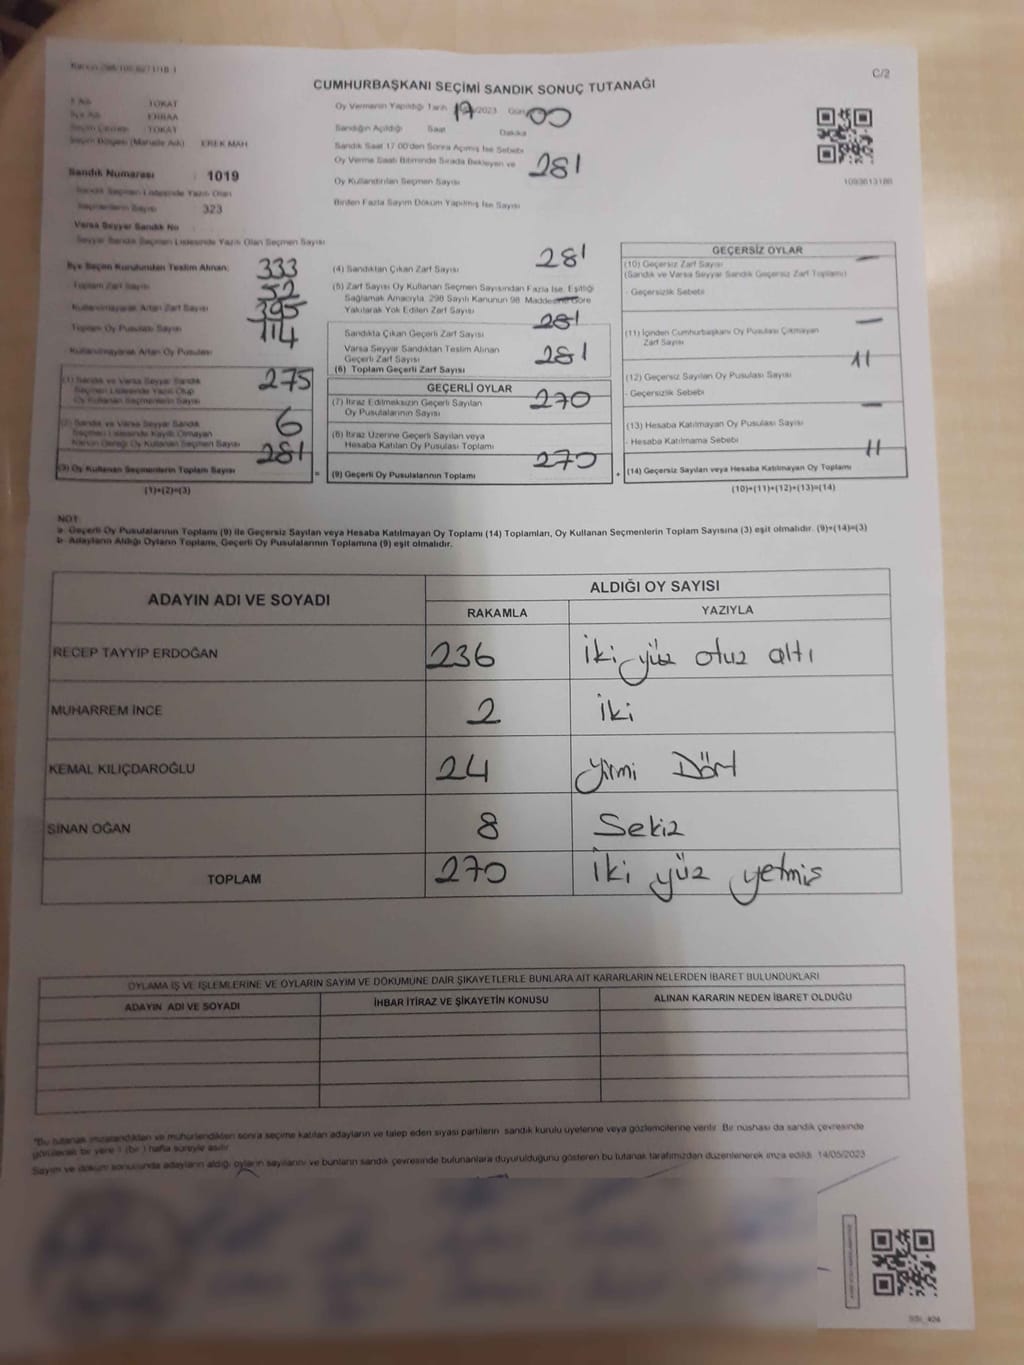 C/2
CUMHURBAŞKANI SEÇİMİ SANDIK SONUÇ TUTANAĞI
İl Adı TOKAT
İlçe Adı ERBAA
Seçim Çevresi TOKAT
Seçim Bölgesi (Mahalle Adı) EREK MAH
Sandık Numarası : 1019
Sandık Seçmen Listesinde Yazılı Olan
Seçmenlerin Sayısı 323
Varsa Seyyar Sandık No
Seyyar Sandık Seçmen Listesinde Yazılı Olan Seçmen Sayısı
Oy Vermenin Yapıldığı Tarih /2023 Gün
Sandığın Açıldığı Saat 17 Dakika 00
Sandık Saat 17.00'den Sonra Açılmış İse Sebebi
Oy Verme Saati Bitiminde Sırada Bekleyen ve
Oy Kullandırılan Seçmen Sayısı 281
Birden Fazla Sayım Döküm Yapılmış İse Sayısı
1093613186
İlçe Seçim Kurulundan Teslim Alınan; 333
Toplam Zarf Sayısı 52
Kullanılmayarak Artan Zarf Sayısı 395
Toplam Oy Pusulası Sayısı 114
Kullanılmayarak Artan Oy Pusulası
(1) Sandık ve Varsa Seyyar Sandık
Seçmen Listesinde Yazılı Olup
Oy Kullanan Seçmenlerin Sayısı 275
(2) Sandık ve Varsa Seyyar Sandık
Seçmen Listesinde Kayıtlı Olmayan
Kanun Gereği Oy Kullanan Seçmen Sayısı 6
(3) Oy Kullanan Seçmenlerin Toplam Sayısı 281
(1)+(2)=(3)
(4) Sandıktan Çıkan Zarf Sayısı 281
(5) Zarf Sayısı Oy Kullanan Seçmen Sayısından Fazla İse, Eşitliği
Sağlamak Amacıyla, 298 Sayılı Kanunun 98. Maddesine Göre
Yakılarak Yok Edilen Zarf Sayısı —
Sandıkta Çıkan Geçerli Zarf Sayısı 281
Varsa Seyyar Sandıktan Teslim Alınan
Geçerli Zarf Sayısı
(6) Toplam Geçerli Zarf Sayısı 281
GEÇERLİ OYLAR
(7) İtiraz Edilmeksizin Geçerli Sayılan
Oy Pusulalarının Sayısı 270
(8) İtiraz Üzerine Geçerli Sayılan veya
Hesaba Katılan Oy Pusulası Toplamı
(9) Geçerli Oy Pusulalarının Toplamı 270
GEÇERSİZ OYLAR
(10) Geçersiz Zarf Sayısı —
(Sandık ve Varsa Seyyar Sandık Geçersiz Zarf Toplamı)
- Geçersizlik Sebebi
(11) İçinden Cumhurbaşkanı Oy Pusulası Çıkmayan —
Zarf Sayısı
(12) Geçersiz Sayılan Oy Pusulası Sayısı 11
- Geçersizlik Sebebi
(13) Hesaba Katılmayan Oy Pusulası Sayısı —
- Hesaba Katılmama Sebebi
(14) Geçersiz Sayılan veya Hesaba Katılmayan Oy Toplamı 11
(10)+(11)+(12)+(13)=(14)
NOT:
a- Geçerli Oy Pusulalarının Toplamı (9) ile Geçersiz Sayılan veya Hesaba Katılmayan Oy Toplamı (14) Toplamları, Oy Kullanan Seçmenlerin Toplam Sayısına (3) eşit olmalıdır. (9)+(14)=(3)
b- Adayların Aldığı Oyların Toplamı, Geçerli Oy Pusulalarının Toplamına (9) eşit olmalıdır.
ADAYIN ADI VE SOYADI ALDIĞI OY SAYISI
RAKAMLA YAZIYLA
RECEP TAYYİP ERDOĞAN 236 İki yüz otuz altı
MUHARREM İNCE 2 İki
KEMAL KILIÇDAROĞLU 24 Yirmi Dört
SİNAN OĞAN 8 Sekiz
TOPLAM 270 İki yüz yetmiş
OYLAMA İŞ VE İŞLEMLERİNE VE OYLARIN SAYIM VE DÖKÜMÜNE DAİR ŞİKAYETLERLE BUNLARA AİT KARARLARIN NELERDEN İBARET BULUNDUKLARI
ADAYIN ADI VE SOYADI İHBAR İTİRAZ VE ŞİKAYETİN KONUSU ALINAN KARARIN NEDEN İBARET OLDUĞU
*Bu tutanak imzalandıktan ve mühürlendikten sonra seçime katılan adayların ve talep eden siyasi partilerin sandık kurulu üyelerine veya gözlemcilerine verilir. Bir nüshası da sandık çevresinde
görülecek bir yere 1 (bir ) hafta süreyle asılır.
Sayım ve döküm sonucunda adayların aldığı oyların sayılarını ve bunların sandık çevresinde bulunanlara duyurulduğunu gösteren bu tutanak tarafımızdan düzenlenerek imza edildi. 14/05/2023